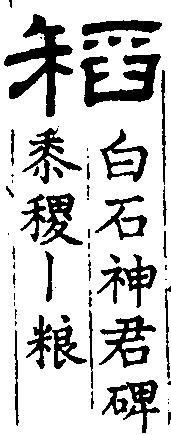 稻
白石神君碑
黍稷丨粮